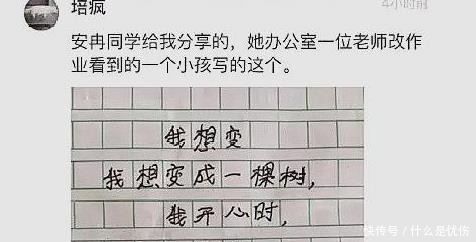 培疯
4小时前
安冉同学给我分享的，她办公室一位老师改作
业看到的一个小孩写的这个。
我想变
我想变成一棵树，
我开心时，
快传号/什么是忧伤